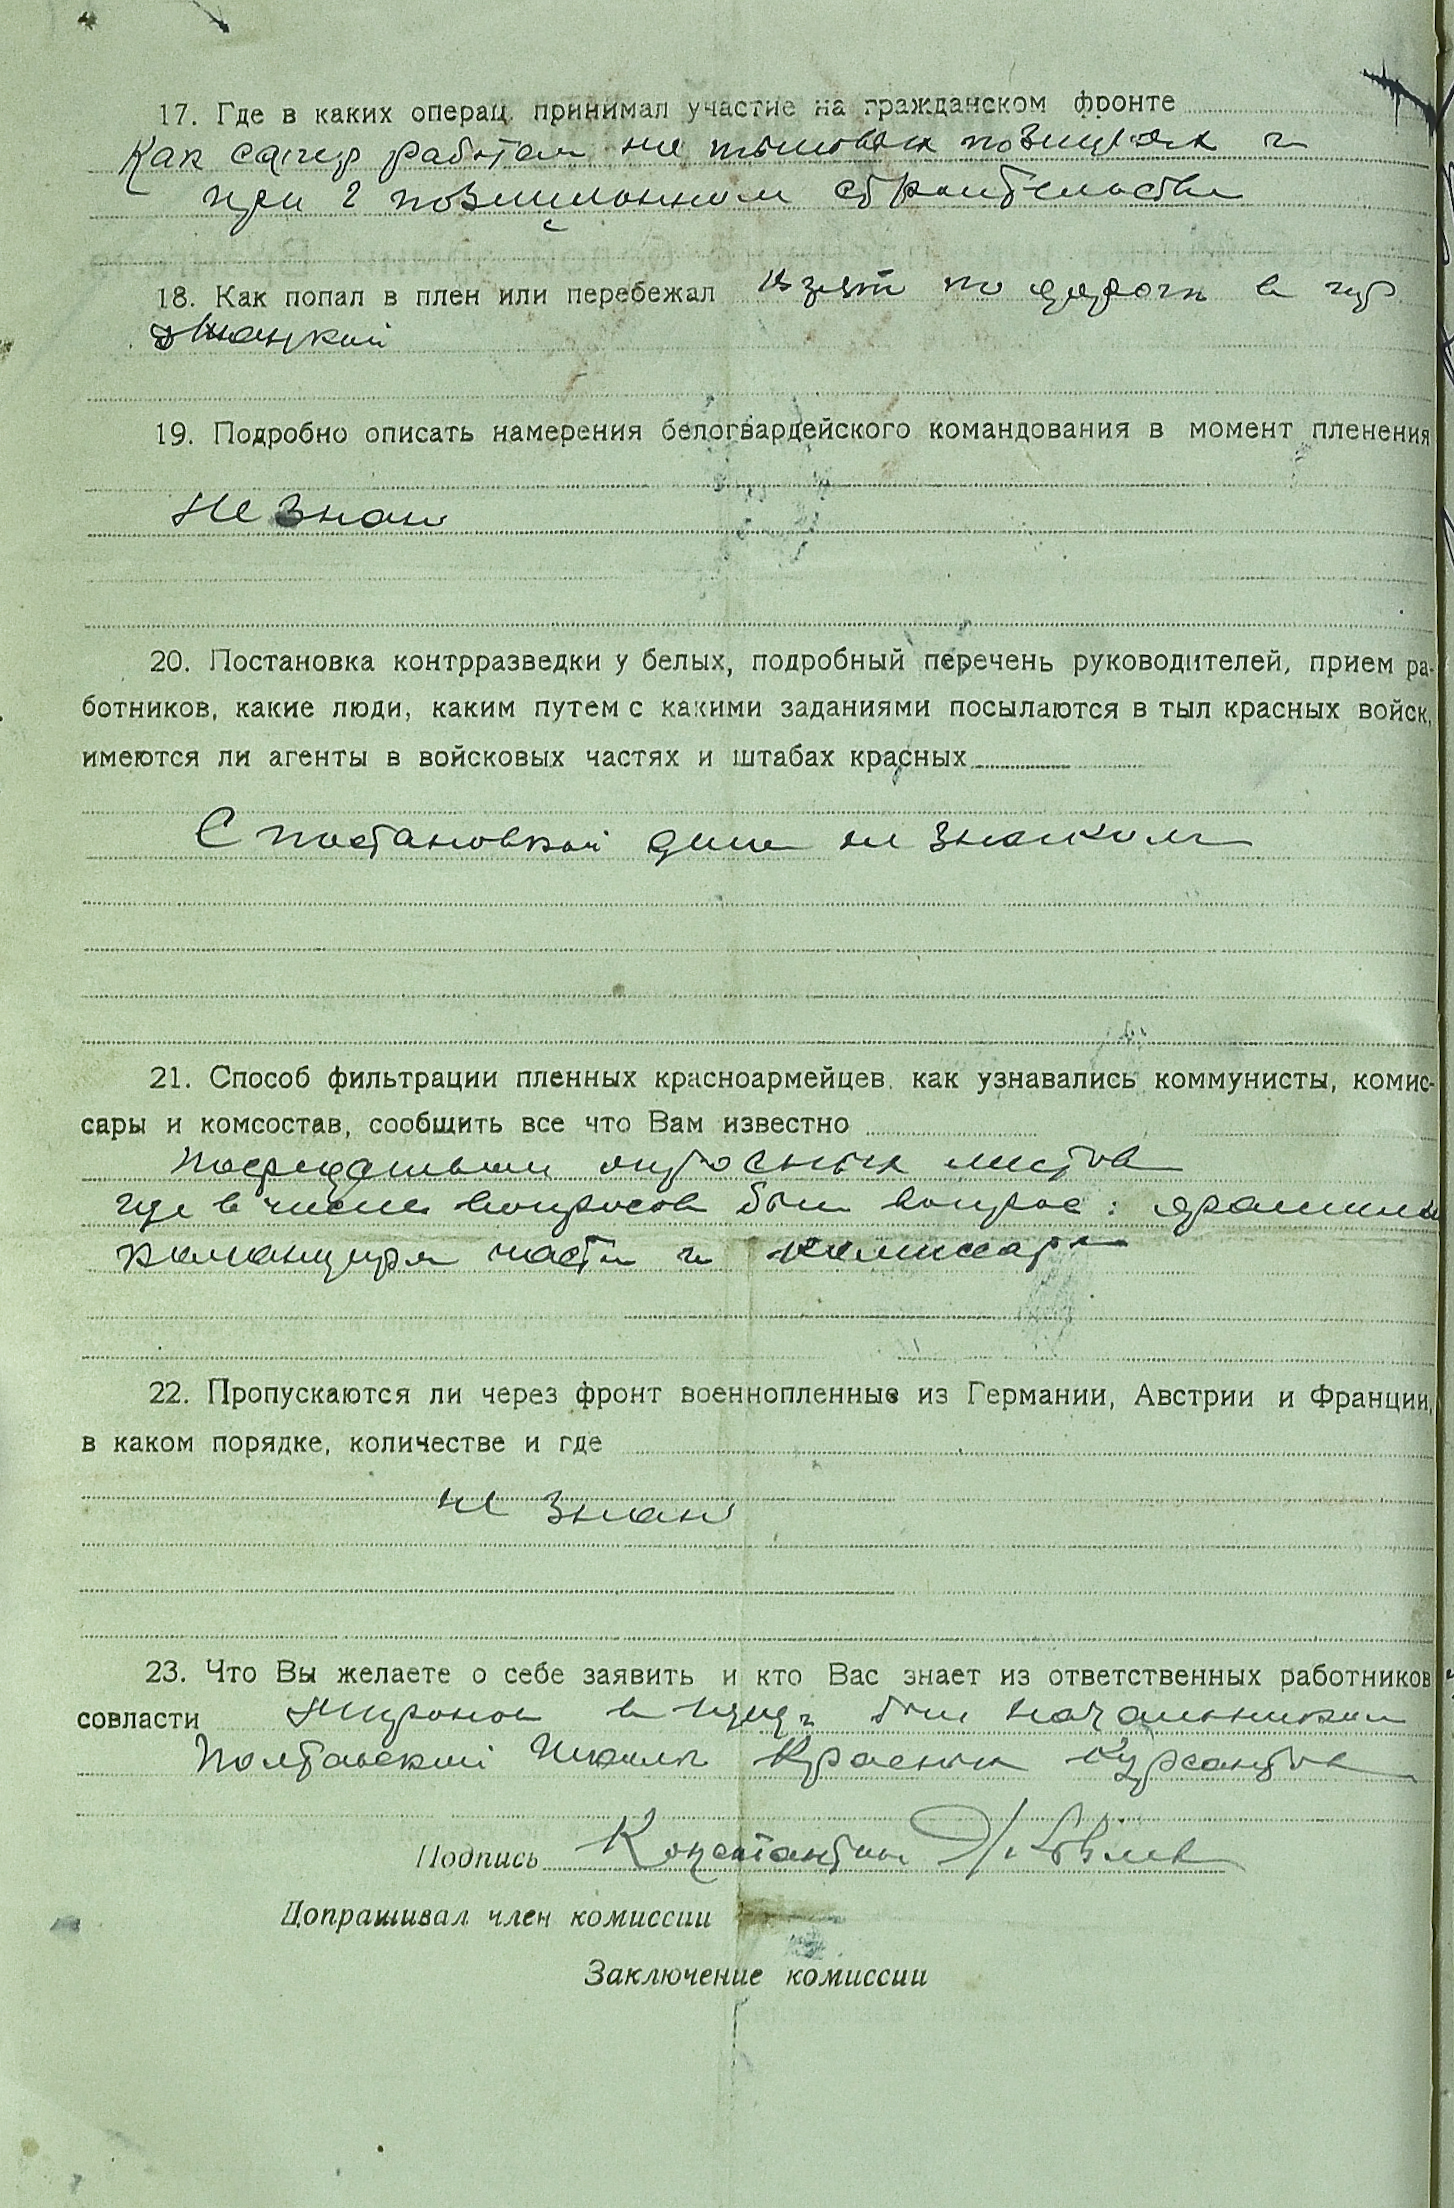 17. Где в каких операц. принимал участие на гражданском фронте
Как сапер работал на тыловых позициях и
при позиционном строительстве
18. Как попал в плен или перебежал взят по дороге в гор
Джанкой
19. Подробно описать намерения белогвардейского командования в момент пленения
Не знаю
20. Постановка контрразведки у белых, подробный перечень руководителей, прием ра-
ботников, какие люди, каким путем с какими заданиями посылаются в тыл красных войск,
имеются ли агенты в войсковых частях и штабах красных
С постановкой дела не знаком
21. Способ фильтрации пленных красноармейцев. как узнавались коммунисты, комис-
сары и комсостав, сообщить все что Вам известно
Посредством опросных листов
где в числе вопросов был вопрос: фамилия
командира части и комиссара
22. Пропускаются ли через фронт военнопленные из Германии, Австрии и Франции,
в каком порядке, количестве и где
не знаю
23. Что Вы желаете о себе заявить и кто Вас знает из ответственных работников
совласти Миронов в был начальником
Полтавской Школы Красных Курсантов
Подпись Константин Яковлев
Допрашивал член комиссии
Заключение комиссии